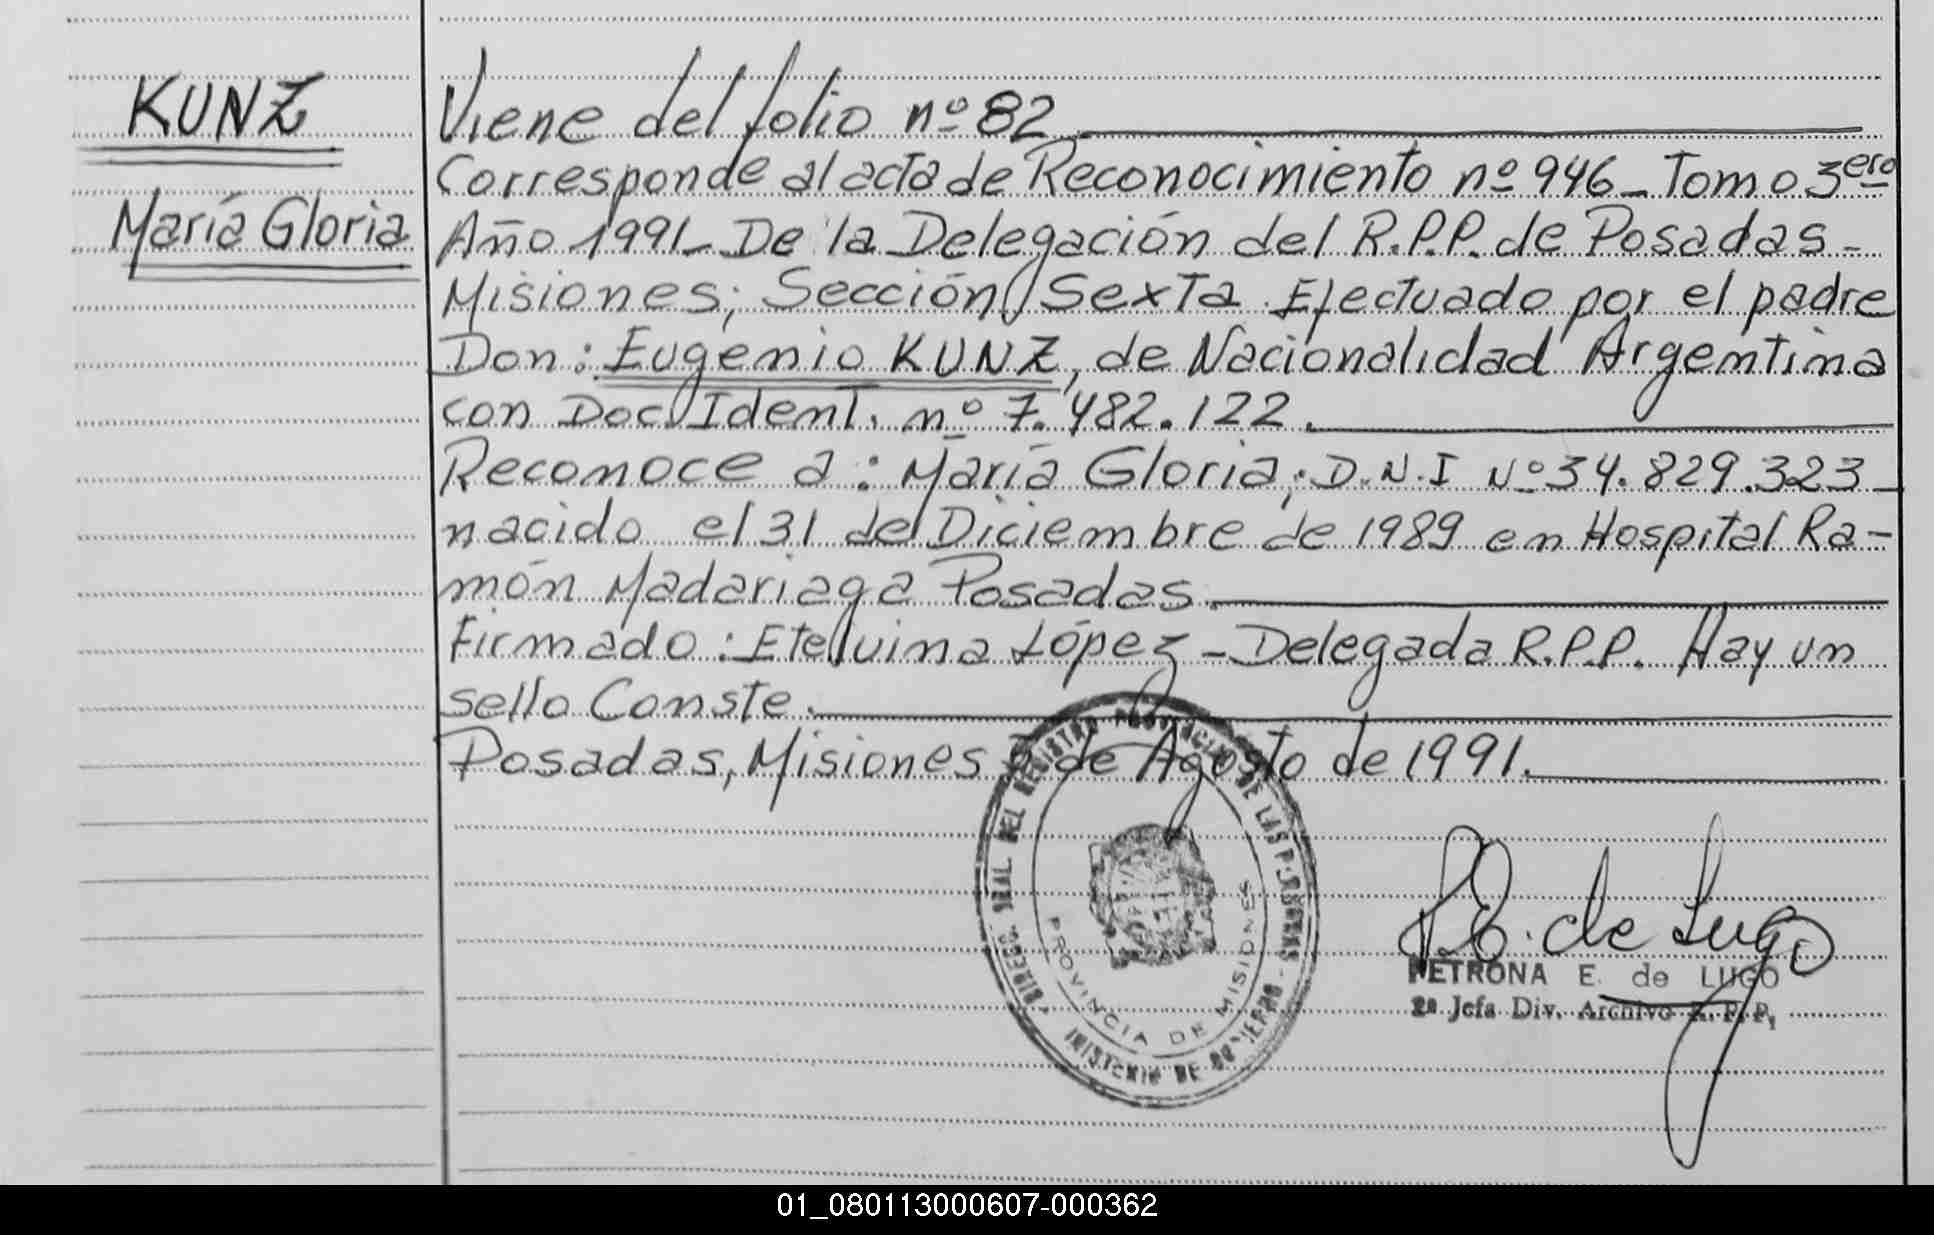 KUNZ
María Gloria
Viene del folio nº 82
Corresponde al acta de Reconocimiento nº 946 - Tomo 3ero
Año 1991 - De la Delegación del R.P.P. de Posadas -
Misiones; Sección Sexta. Efectuado por el padre
Don: Eugenio KUNZ, de Nacionalidad Argentina
con Doc. Ident. nº 7.482.122.
Reconoce a: María Gloria; D.N.I Nº 34.829.323
nacido el 31 de Diciembre de 1989 en Hospital Ra-
món Madariaga Posadas.
Firmado: Etelvina López - Delegada R.P.P. Hay un
sello Conste.
Posadas, Misiones de Agosto de 1991.
DEL REGISTRO PROVINCIAL DE LAS PERSONAS
PROVINCIA DE MISIONES
MINISTERIO DE GOBIERNO
P.E. de Lugo
PETRONA E. de LUGO
2ª Jefa Div. Archivo R. P. P.
01_080113000607-000362